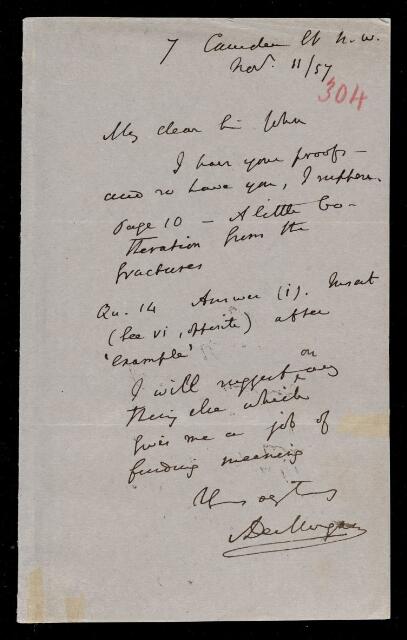 7 Camden St N.W.
Nov. 11/57
304
My dear Sir John
I have your proofs -
and so have you, I suppose.
Page 10 - A little bo-
theration from the
fractures
Qu. 14 Answer (i). Insert
(See vi, opposite) after
'example'
I will suggest on any
thing else which
gives me a job of
finding meaning
Yours
A De Morgan